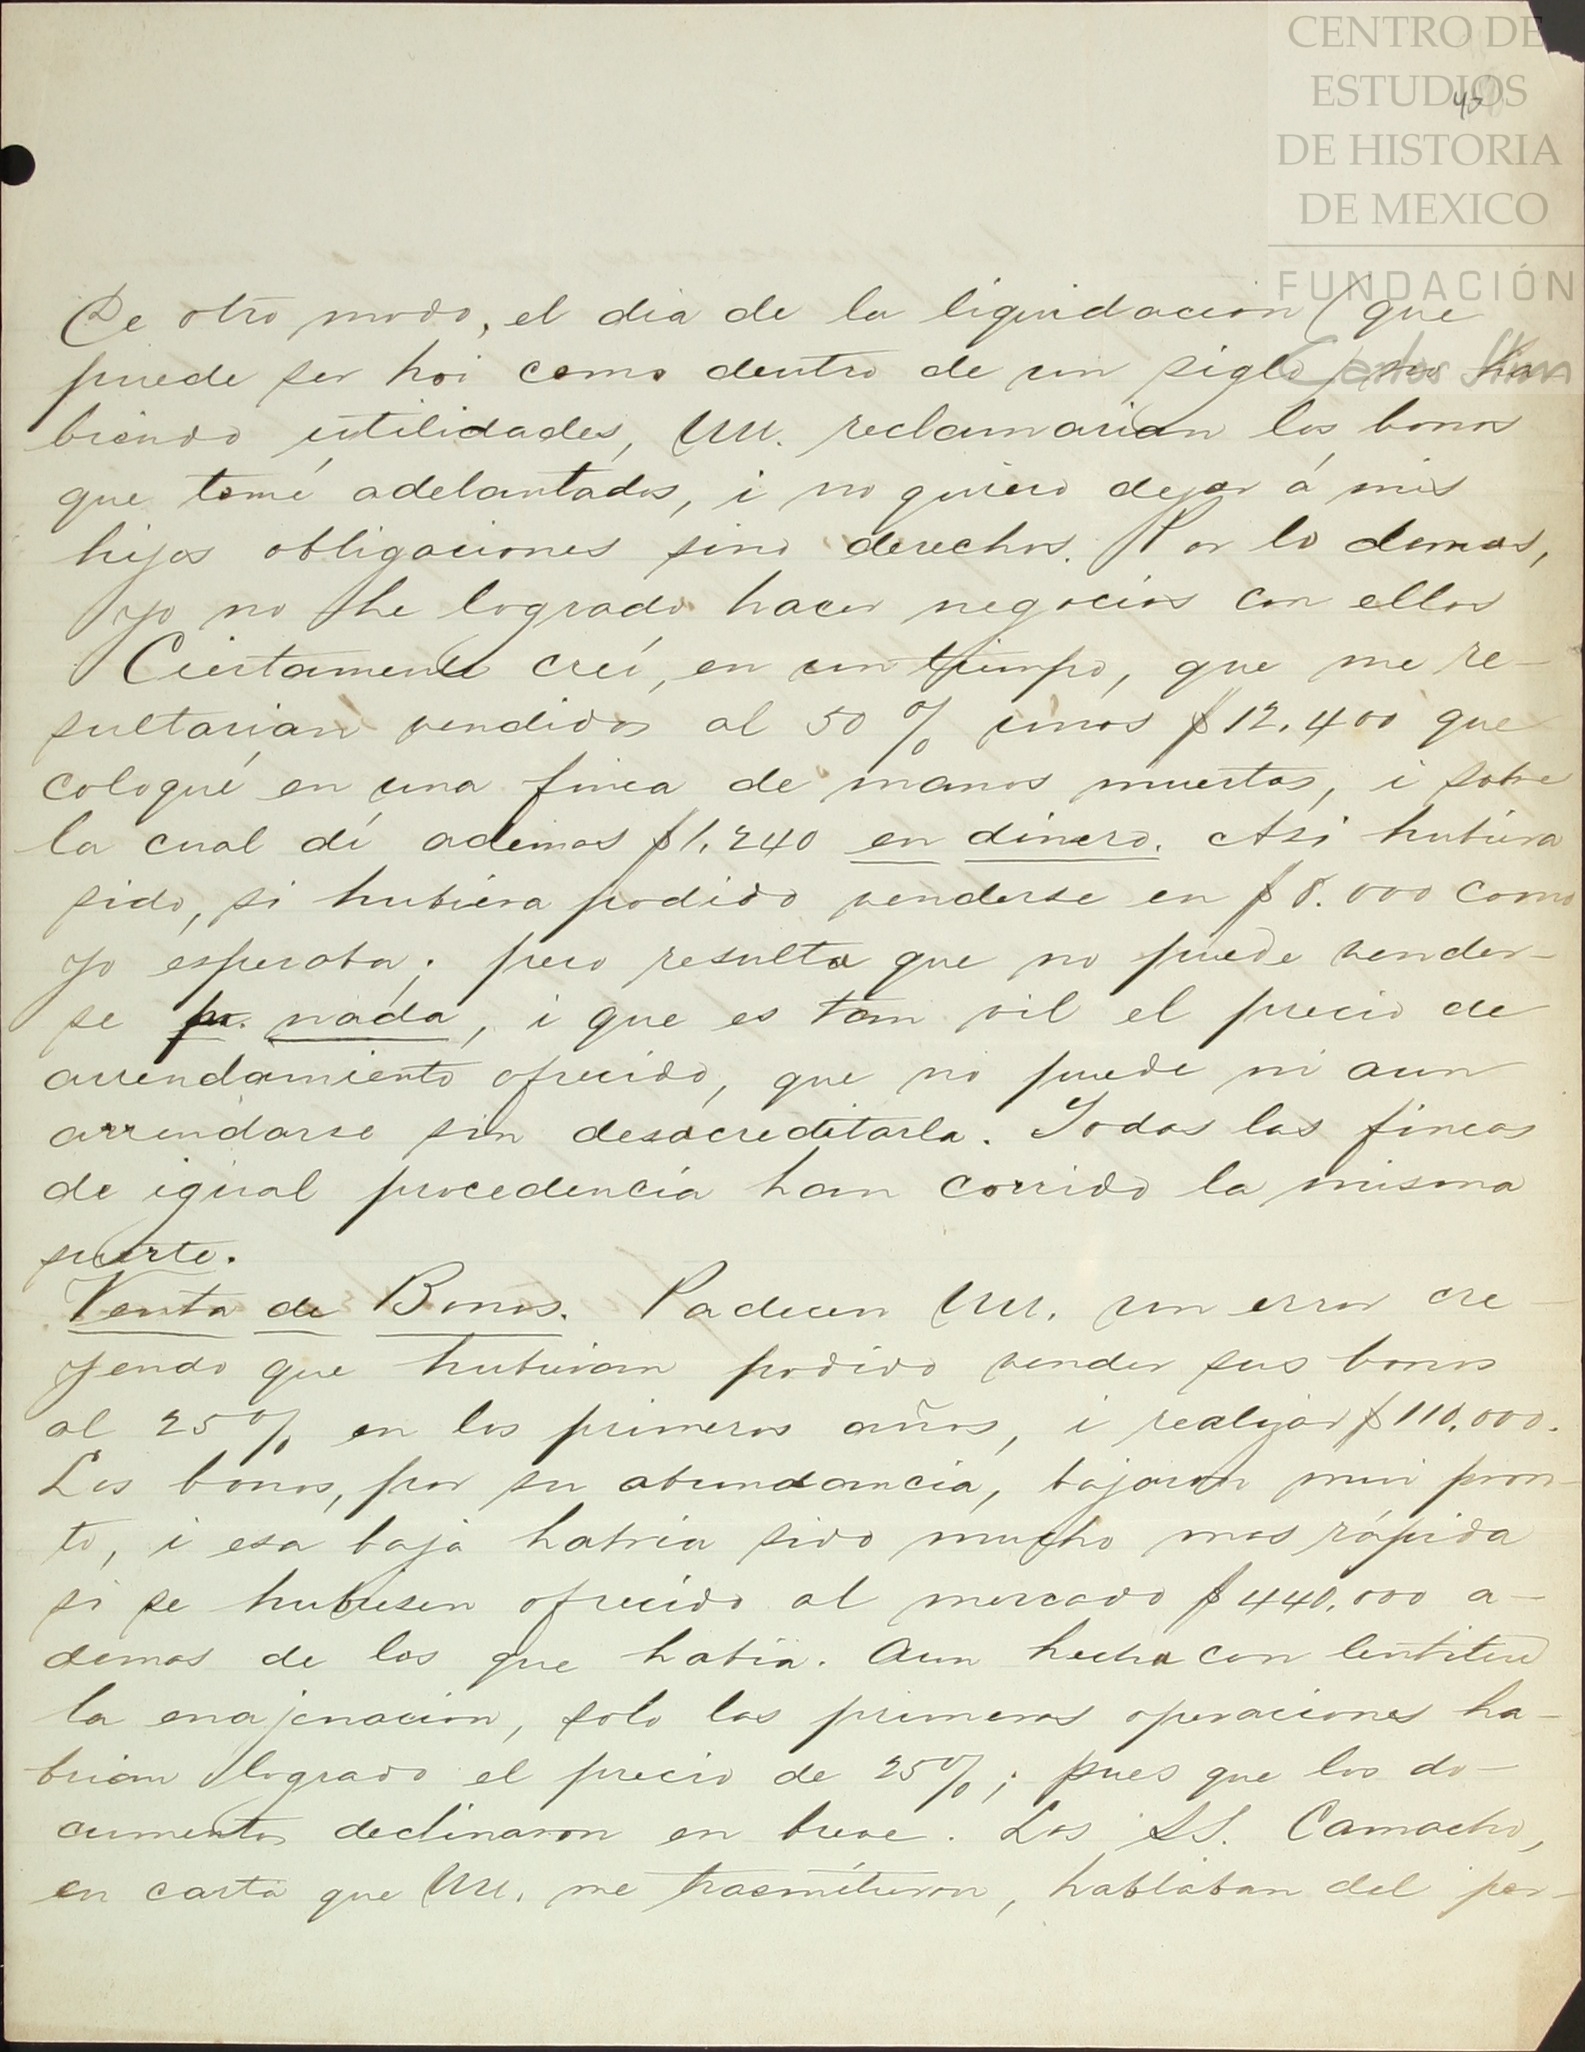 CENTRO DE
ESTUDIOS
DE HISTORIA
DE MEXICO
FUNDACIÓN
Carlos Slim
De otro modo, el dia de la liquidacion (que
puede ser hoi como dentro de un siglo) no ha-
biendo utilidades, UU. reclamarian los bonos
que tomé adelantados, i no quiero dejar á mis
hijos obligaciones sino derechos. Por lo demas,
yo no he logrado hacer negocios con ellos
Ciertamente creí, en un tiempo, que me re-
sultarian vendidos al 50% unos $12.400 que
coloqué en una finca de manos muertas, i sobre
la cual dí ademas $1.240 en dinero. Asi hubiera
sido, si hubiera podido venderse en $8.000 como
yo esperaba; pero resulta que no puede vender-
se pr. nada, i que es tan vil el precio de
arrendamiento ofrecido, que no puede ni aun
arrendarse sin desacreditarla. Todas las fincas
de igual procedencia han corrido la misma
suerte.
Venta de Bonos. Padecen UU. un error cre-
yendo que hubieran podido vender sus bonos
al 25% en los primeros años, i realizar $110.000.
Los bonos, por su abundancia, bajaron mui pron-
to, i esa baja habria sido mucho mas rápida
si se hubiesen ofrecido al mercado $440.000 a-
demas de los que habia. Aun hecha con lentitud
la enajenacion, solo las primeras operaciones ha-
brian logrado el precio de 25%; pues que los do-
cumentos declinaron en breve. Los SS. Camacho,
en carta que UU. me trasmitieron, hablaban del por-